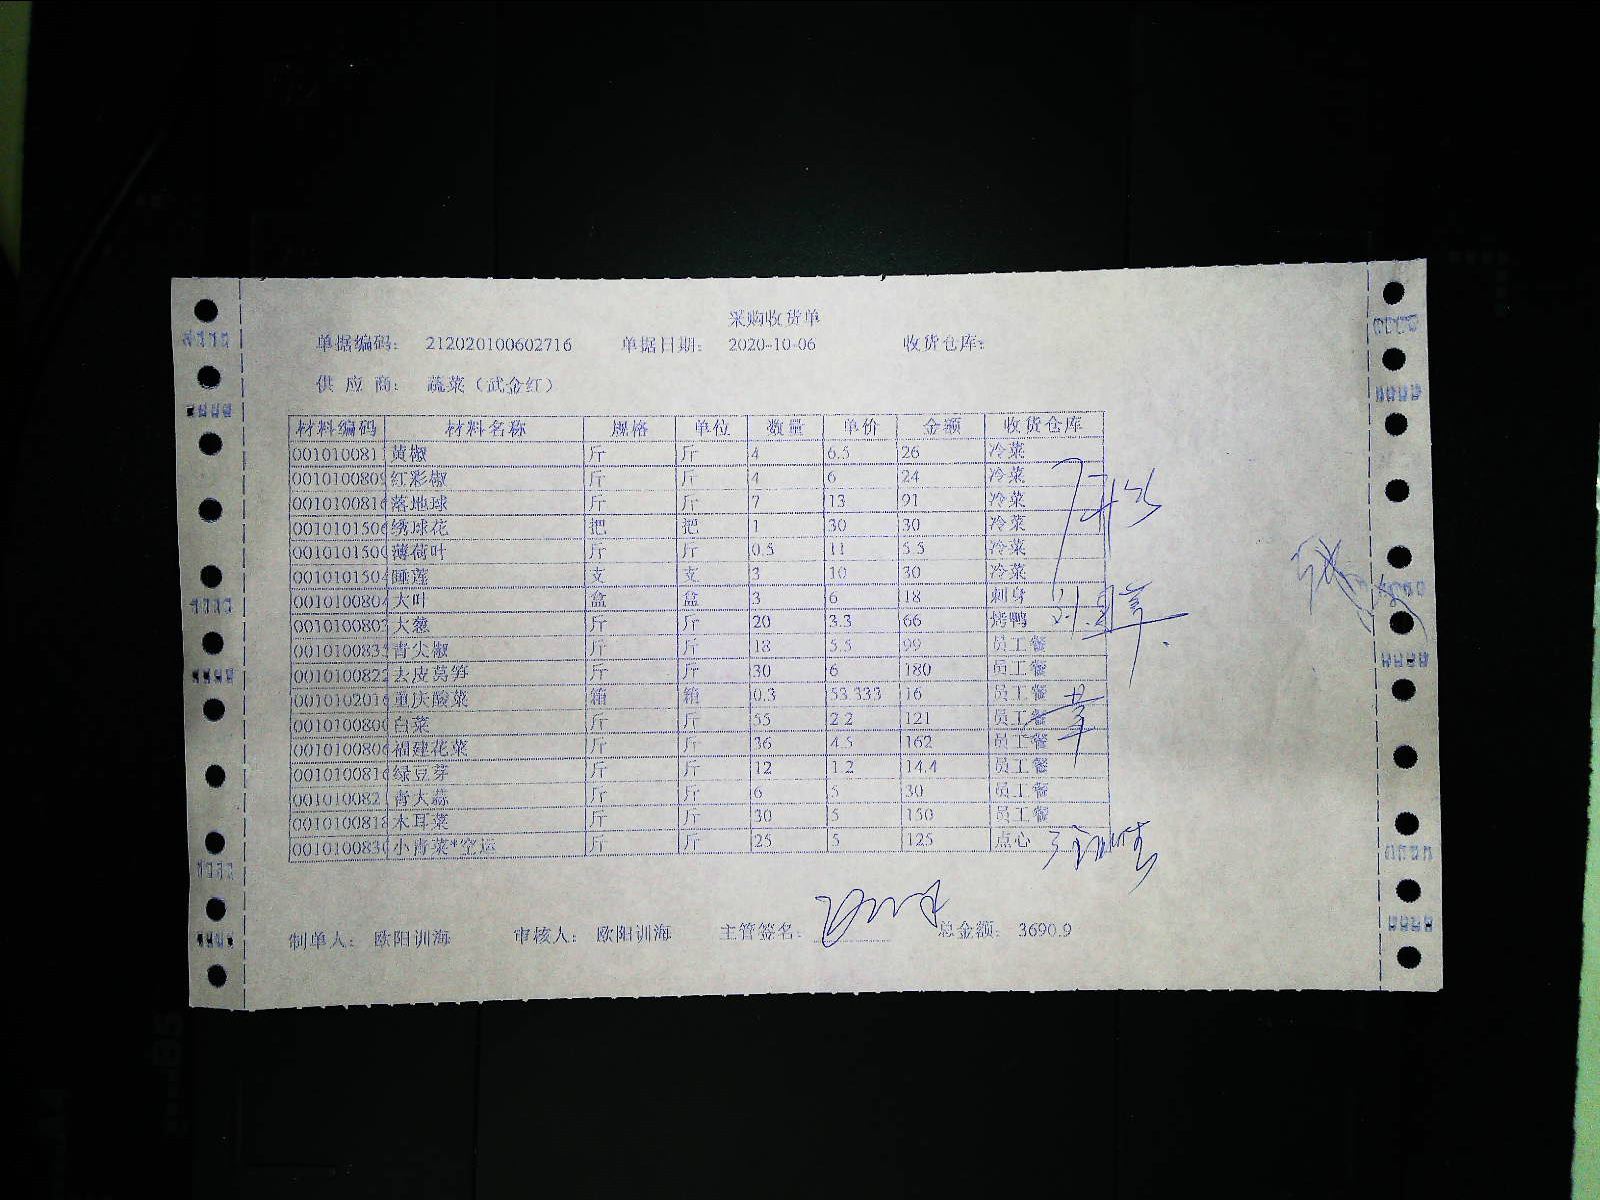 采购收货单
单据编码: 212020100602716 单据日期: 2020-10-06 收货仓库:
供 应 商: 蔬菜(武金红)
材料编码 材料名称 规格 单位 数量 单价 金额 收货仓库
001010081 黄椒 斤 斤 4 6.5 26 冷菜
0010100809 红彩椒 斤 斤 4 6 24 冷菜
0010100816 落地球 斤 斤 7 13 91 冷菜
0010101506 绣球花 把 把 1 30 30 冷菜
0010101500 薄荷叶 斤 斤 0.5 11 5.5 冷菜
0010101504 睡莲 支 支 3 10 30 冷菜
0010100804 大叶 盒 盒 3 6 18 刺身
0010100803 大葱 斤 斤 20 3.3 66 烤鸭
0010100833 青尖椒 斤 斤 18 5.5 99 员工餐
0010100822 去皮莴笋 斤 斤 30 6 180 员工餐
0010102016 重庆酸菜 箱 箱 0.3 53.333 16 员工餐
0010100800 白菜 斤 斤 55 2.2 121 员工餐
0010100806 福建花菜 斤 斤 36 4.5 162 员工餐
0010100816 绿豆芽 斤 斤 12 1.2 14.4 员工餐
001010082 青大蒜 斤 斤 6 5 30 员工餐
0010100818 木耳菜 斤 斤 30 5 150 员工餐
0010100830 小青菜*空运 斤 斤 25 5 125 点心
制单人: 欧阳训海 审核人: 欧阳训海 主管签名: 总金额: 3690.9